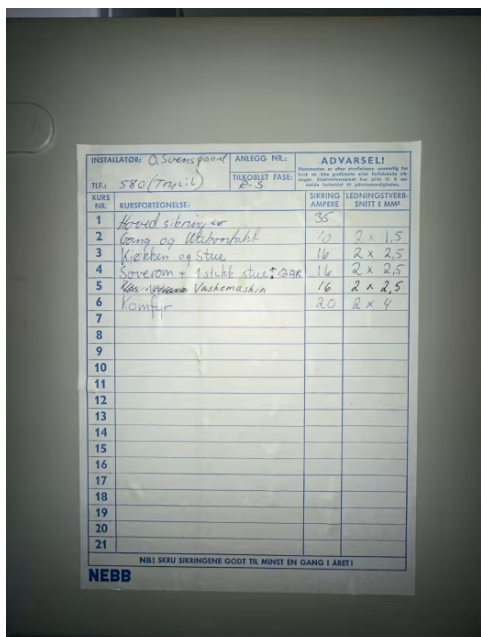 INSTALLATØR: O. Svensgaard ANLEGG NR.: ADVARSEL!
TLF.: 580 (Trysil) TILKOBLET FASE: R-S
KURS NR. KURSFORTEGNELSE: SIKRING AMPERE LEDNINGSTVERR- SNITT I MM²
1 Hoved sikringer 35
2 Gang og Utekontakt 10 2 x 1,5
3 Kjøkken og Stue 16 2 x 2,5
4 Soverom + 1 stikk stue + GAR 16 2 x 2,5
5 Vaskemaskin 16 2 x 2,5
6 Komfyr 20 2 x 4
7
8
9
10
11
12
13
14
15
16
17
18
19
20
21
NB! SKRU SIKRINGENE GODT TIL MINST EN GANG I ÅRET!
NEBB